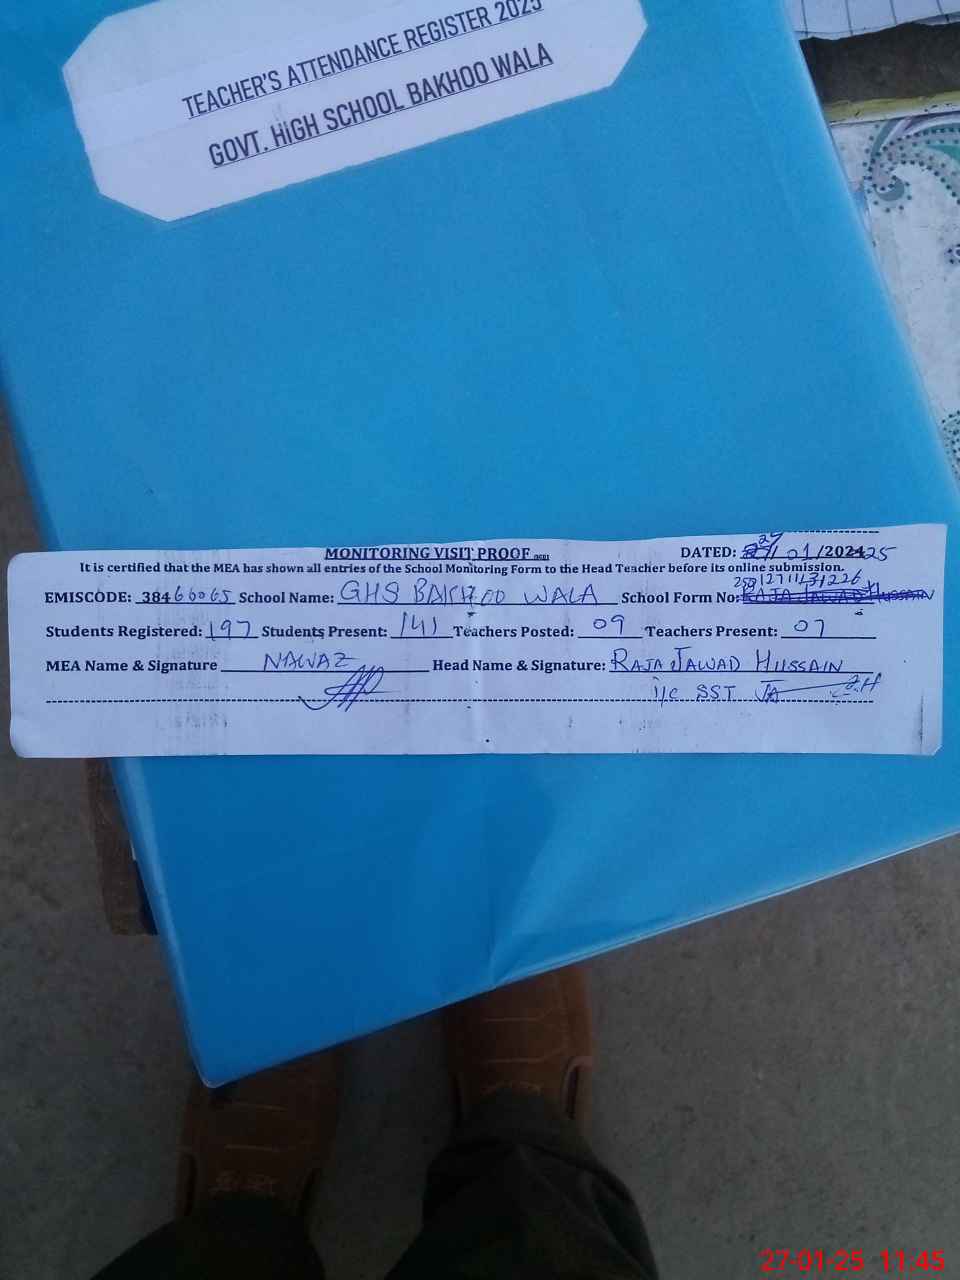 TEACHER'S ATTENDANCE REGISTER 2025
GOVT. HIGH SCHOOL BAKHOO WALA
MONITORING VISIT PROOF
DATED: 27/01/202425
It is certified that the MEA has shown all entries of the School Monitoring Form to the Head Teacher before its online submission.
EMISCODE: 38466065 School Name: GHS BAKHOO WALA School Form No: RAJA JAWAD HUSSAIN
Students Registered: 197 Students Present: 141 Teachers Posted: 09 Teachers Present: 07
MEA Name & Signature NAWAZ Head Name & Signature: RAJA JAWAD HUSSAIN
i/c SST
27-01-25 11:45